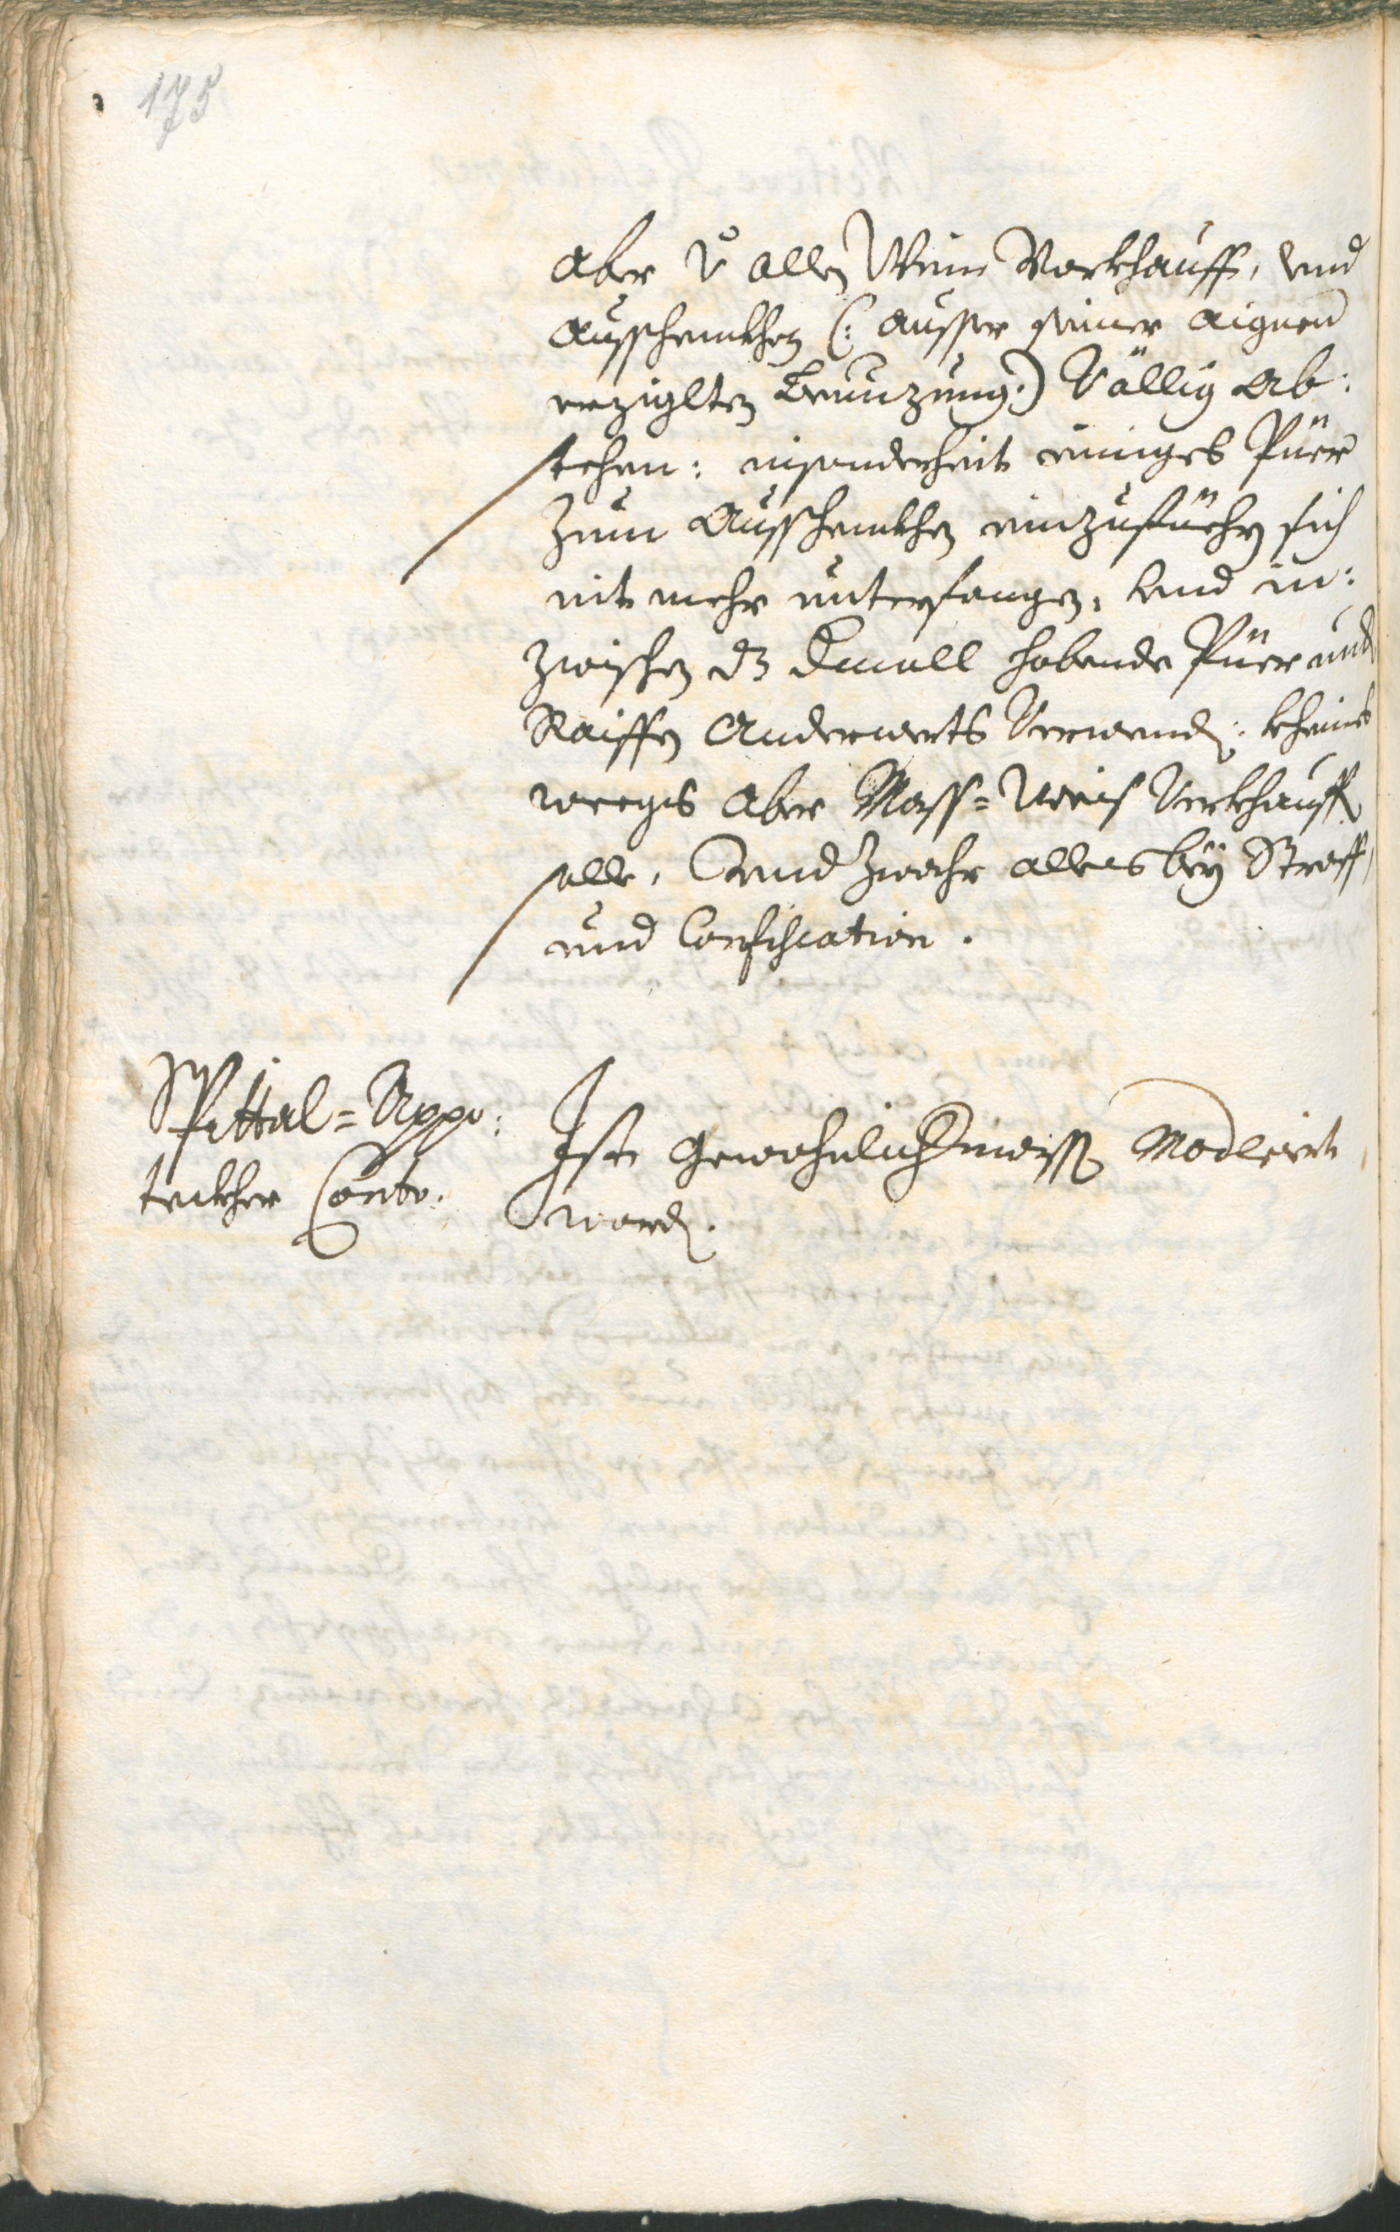 175
aber v̊ allen Wein Verkhauff, vnd
ausschenkhen (: ausser seiner aignen
erziglten Benuzung:) Völlig ab:
stehen: insonderheit einiges Püer
zum ausschenkhen einzufüehren sich
nit mehr unterfangen, vnd in:
zwischen dz Emall habende Püer und
Raiffen anderwerts Verwenden: kheines
weegs aber Mass=Weis Verkhauffen
solle, Vnd zwahr alles bey Straff,
und Confiscation.
SPittal=Appo:
tekher Conto.
Ist gewohnlichermassen Moderirt
worden.